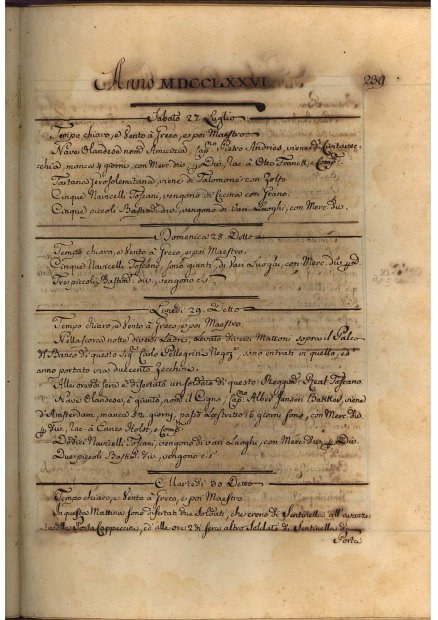 Anno MDCCLXXVI
239
Sabato 27 Luglio
Tempo chiaro, e Vento à Greco, e poi Maestro.
Nave Olandese nom.ª Amicizia, Cap.no Pietro Andries, viene di Civitavec-
chia, manca 4 giorni, con Merc. div. p. Div. Rac. à Otto Franck, e Comp.
Tartana Jerosolemitana, viene di Talamone con Zolfo
Cinque Navicelli Toscani, vengono di Cecina con Grano.
Cinque piccoli Bastim. div. vengono di Vari Luoghi, con Merc. Div.
Domenica 28 Detto
Tempo chiaro, e Vento à Greco, e poi Maestro.
Cinque Navicelli Toscani, sono giunti, di Vari Luoghi, con Merc. Div.
Tre piccoli Bastim. div. vengono c. s.
Lunedì 29 Detto
Tempo chiaro, e Vento à Greco, e poi Maestro.
Nella scorsa notte diversi Ladri, Levato diversi Mattoni sopra il Palco
del Banco di questo Sig. Carlo Pellegrini Negoz. sono entrati in quello, ed
anno portato via duecento Zecchini.
Alle ore di sera è disertato un soldato di questo Reggim. Real Toscano
Nave Olandese, è giunta, nom. il Cigno, Cap. Albert Janson Bakker, viene
d'Amsterdam, manca giorni, passò da stretto 16 giorni sono, con Merc. Div.
p. Div. Rac. à Enrico Holst, e Comp.
Dodici Navicelli Toscani, vengono di vari Luoghi, con Merc. Div. p. Div.
Due piccoli Bastim. div. vengono c. s.
Martedì 30 Detto
Tempo chiaro, e Vento à Greco, e poi Maestro.
In questa Mattina sono disertati due Soldati, che erono di Sentinella all'
della Porta Cappuccini, ed alle ore 2 di sera altro Soldato di Sentinella di
Porta